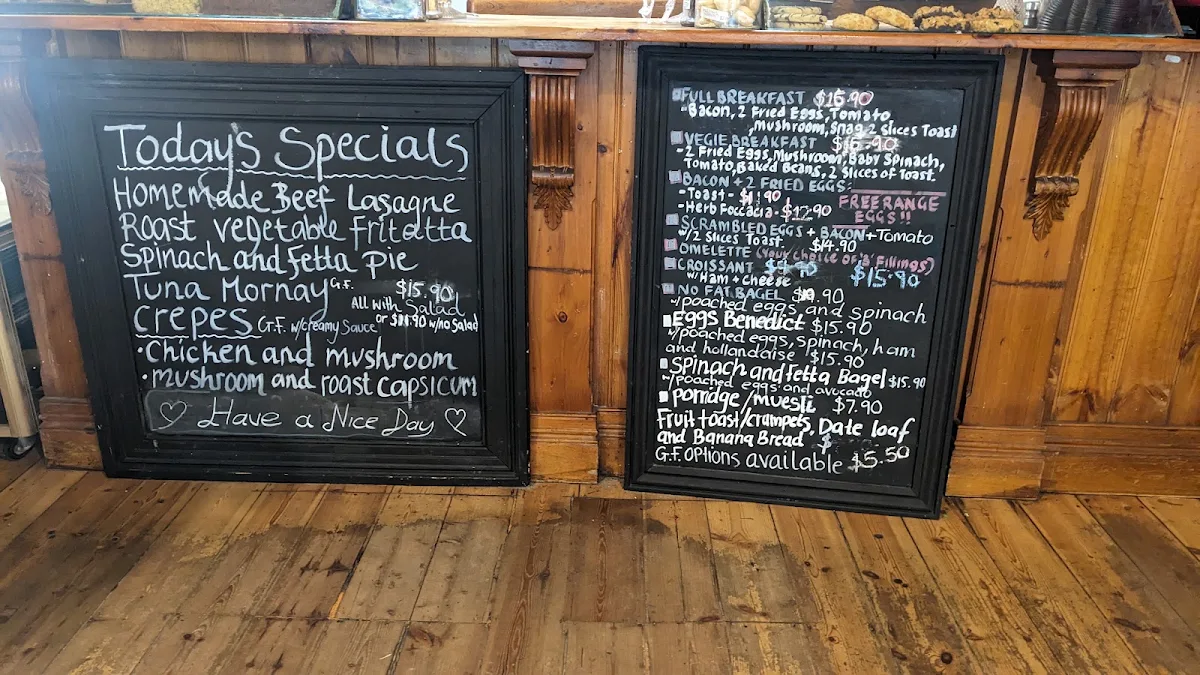 Today's Specials
Homemade Beef Lasagne
Roast vegetable Fritatta
Spinach and fetta pie
Tuna Mornay G.F. $15.90
All with Salad
or $11.90 w/no Salad
crepes G.F. w/creamy Sauce
•Chicken and mushroom
•mushroom and roast capsicum
♡ Have a Nice Day ♡
FULL BREAKFAST $15.90
-Bacon, 2 Fried Eggs, Tomato
,mushroom, Snag, 2 slices Toast
VEGIE BREAKFAST $16.90
-2 Fried Eggs, Mushroom, Baby Spinach,
Tomato, Baked Beans, 2 Slices of Toast.
BACON + 2 FRIED EGGS:
-Toast - $11.90
-Herb Foccacia - $12.90
FREE RANGE
EGGS!!
SCRAMBLED EGGS + BACON + Tomato
w/2 Slices Toast. $14.90
OMELETTE (Your choice of '3' Fillings)
$15.90
CROISSANT $9.90
w/Ham + Cheese
NO FAT BAGEL .90
w/poached eggs and spinach
Eggs Benedict $15.90
w/poached eggs, spinach, ham
and hollandaise $15.90
Spinach and Fetta Bagel $15.90
w/poached eggs and avocado
Porridge/muesli $7.90
Fruit toast/crampets, Date loaf
and Banana Bread $
G.F. options available $5.50